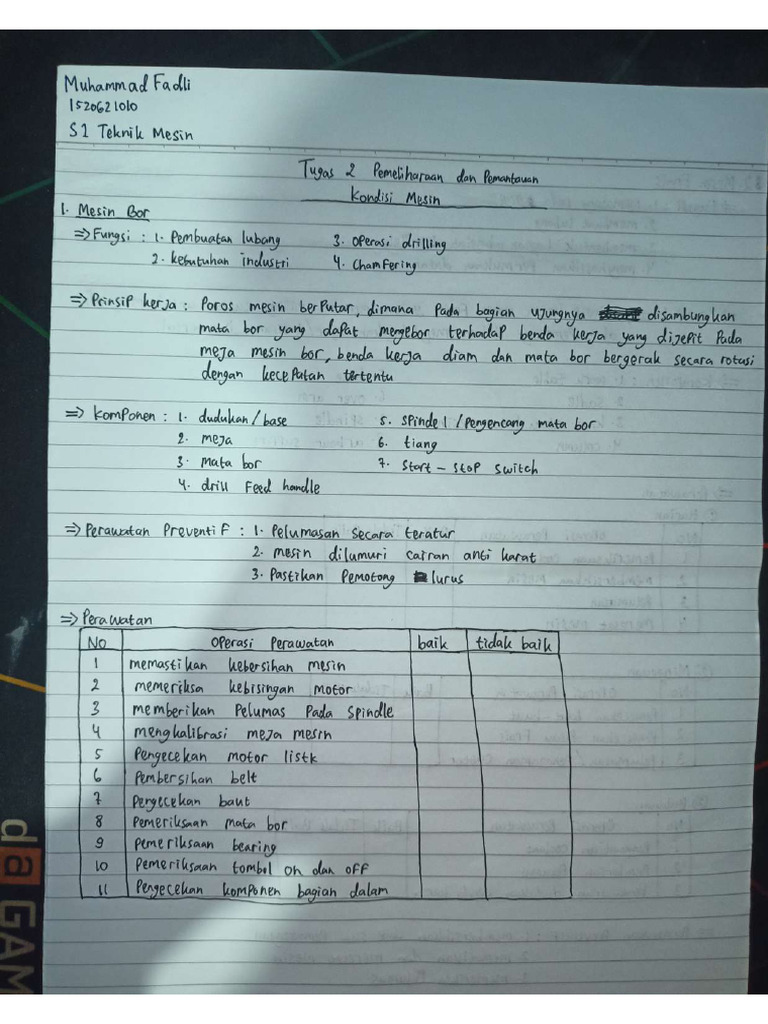 Muhammad Fadli
1520621010
S1 Teknik Mesin
Tugas 2 Pemeliharaan dan Pemantauan
Kondisi Mesin
1. Mesin Bor
=> Fungsi : 1. Pembuatan lubang 3. operasi drilling
2. kebutuhan industri 4. Chamfering
=> Prinsip kerja : Poros mesin berputar, dimana pada bagian ujungnya disambungkan
mata bor yang dapat mengebor terhadap benda kerja yang dijepit pada
meja mesin bor, benda kerja diam dan mata bor bergerak secara rotasi
dengan kecepatan tertentu
=> Komponen : 1. dudukan / base 5. spindel / pengencang mata bor
2. meja 6. tiang
3. mata bor 7. start - stop switch
4. drill feed handle
=> Perawatan Preventif : 1. Pelumasan secara teratur
2. mesin dilumuri cairan anti karat
3. Pastikan Pemotong lurus
=> Perawatan
No Operasi Perawatan baik tidak baik
1 memastikan kebersihan mesin
2 memeriksa kebisingan motor
3 memberikan Pelumas Pada Spindle
4 mengkalibrasi meja mesin
5 Pengecekan motor listk
6 Pembersihan belt
7 Pengecekan baut
8 Pemeriksaan mata bor
9 Pemeriksaan bearing
10 Pemeriksaan tombol on dan off
11 Pengecekan komponen bagian dalam
da GAM